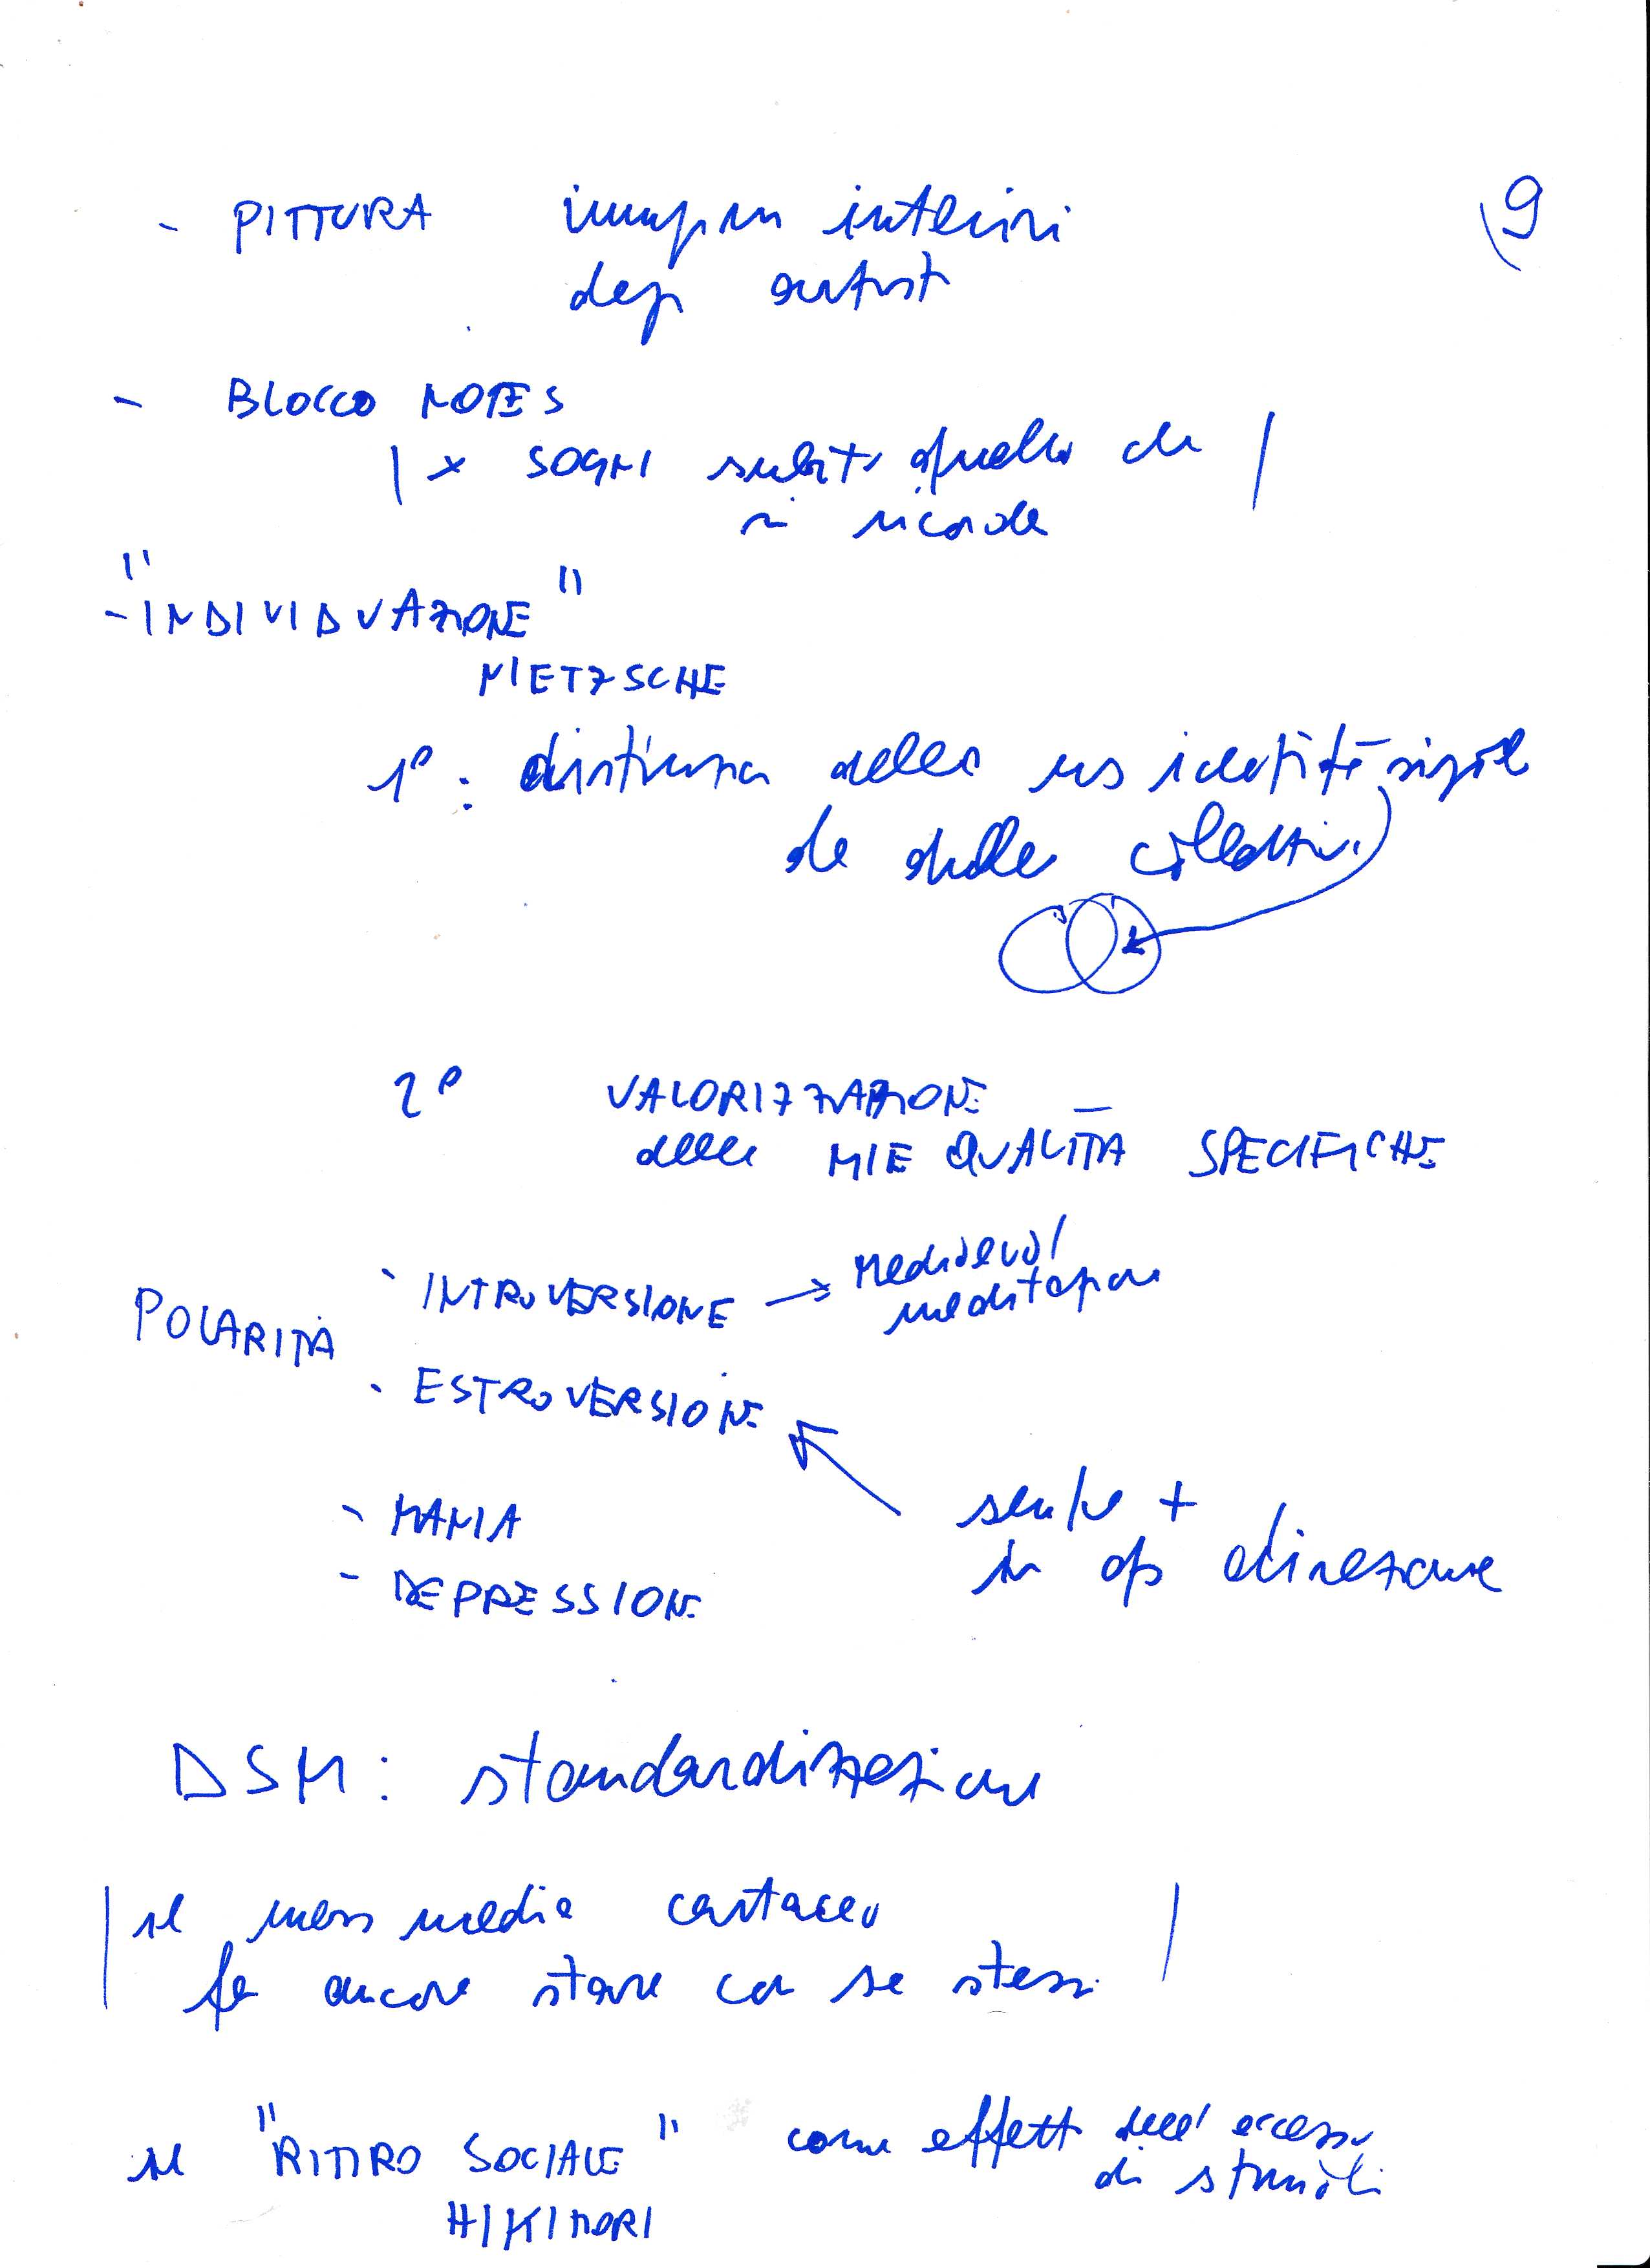 9
- PITTURA immagini interiori
degli artisti
- BLOCCO NOTES
| x SOGNI subito quello che |
si ricorda
- "INDIVIDUAZIONE"
NIETZSCHE
1°: distinzione della identità
da quella collettiva
2° VALORIZZAZIONE
delle MIE QUALITÀ SPECIFICHE
POLARITÀ
- INTROVERSIONE → Medioevo /
meditazione
- ESTROVERSIONE
- MANIA
- DEPRESSIONE
sempre +
in ogni direzione
DSM: standardizzazione
| il mass media cartaceo
fa ancora stare con se stessi |
il "RITIRO SOCIALE" come effetto dell'eccesso
di stimoli
HIKIMORI